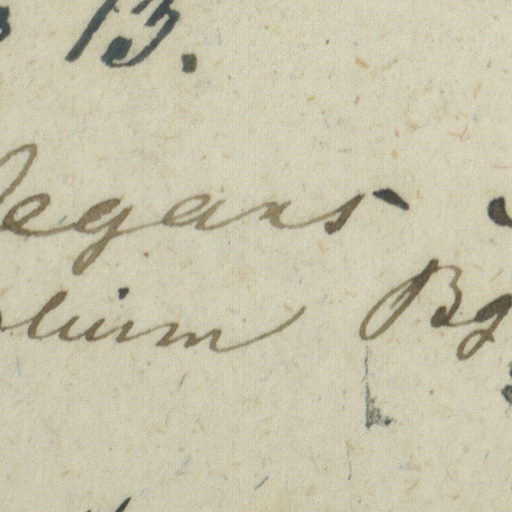 13.
legans
lium Bg